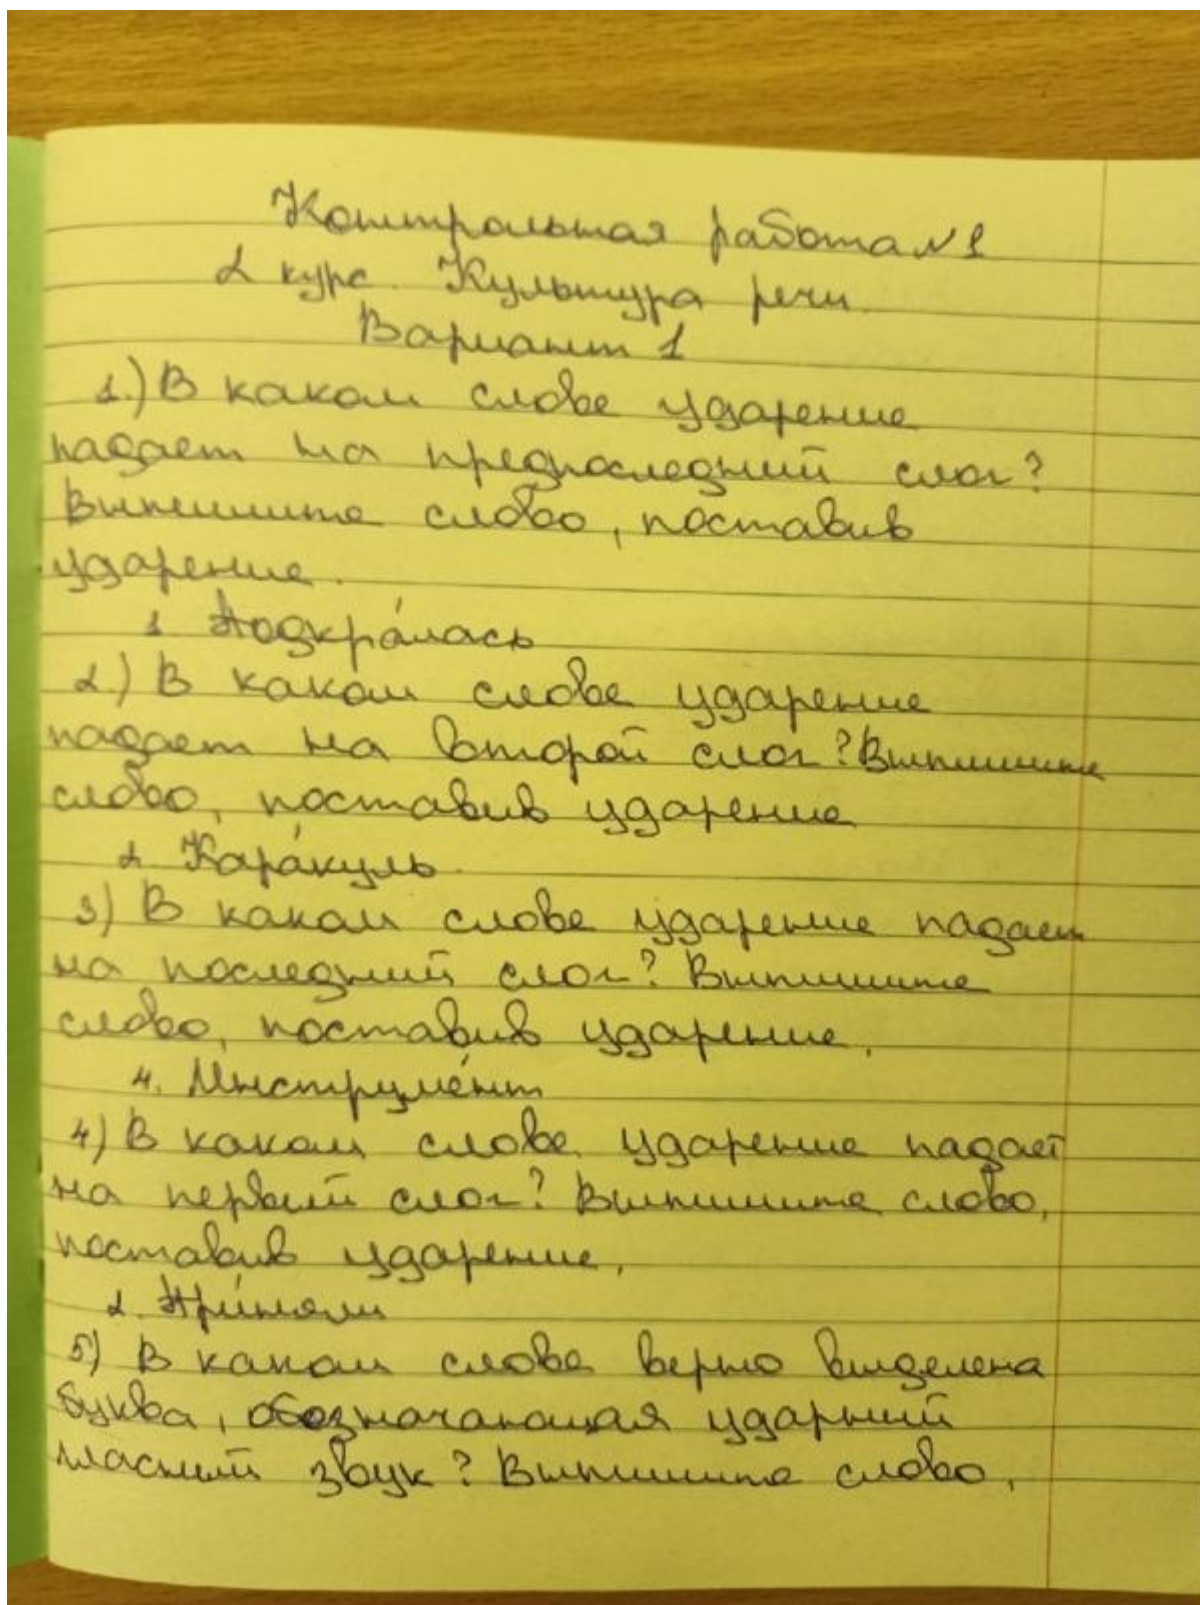 Контрольная работа №1
2 курс. Культура речи.
Вариант 1
1.) В каком слове ударение
падает на предпоследний слог?
Выпишите слово, поставив
ударение.
1 Подкра́лась
2.) В каком слове ударение
падает на второй слог? Выпишите
слово, поставив ударение
2. Кара́куль.
3) В каком слове ударение падает
на последний слог? Выпишите
слово, поставив ударение.
4. Инструме́нт
4) В каком слове ударение падает
на первый слог? Выпишите слово,
поставив ударение.
2. При́няли
5) В каком слове верно выделена
буква, обозначающая ударный
гласный звук? Выпишите слово.